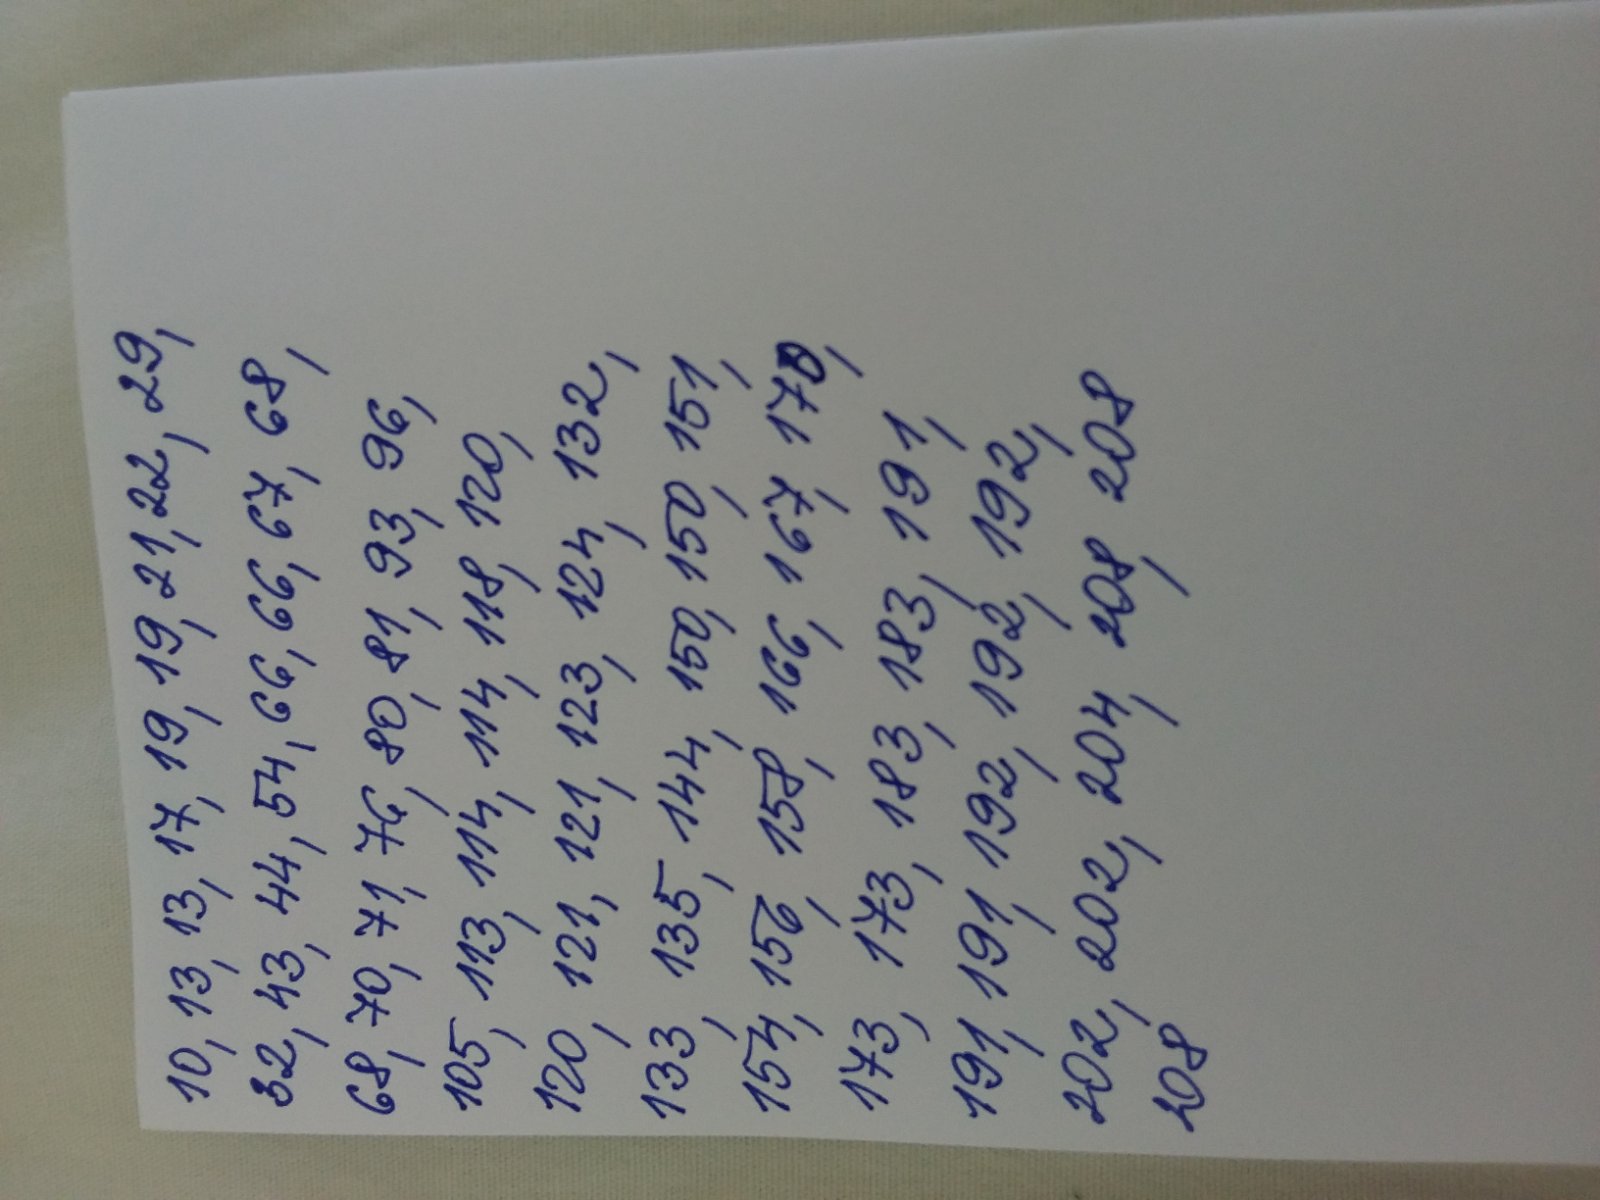 10, 13, 13, 17, 19, 19, 21, 22, 29,
32, 43, 44, 54, 66, 66, 66, 67, 68,
68, 70, 71, 76, 80, 81, 93, 96,
105, 113, 114, 114, 118, 120,
120, 121, 121, 123, 124, 132,
133, 135, 144, 150, 150, 151,
154, 156, 158, 166, 167, 170,
173, 173, 183, 183, 191,
191, 191, 192, 192, 192,
202, 202, 204, 208, 208
208